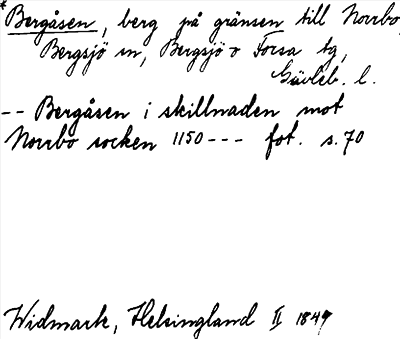 *Bergåsen, berg på gränsen till Norrbo,
Bergsjö sn, Bergsjö o Forsa tg,
Gävleb. l.
-- Bergåsen i skillnaden mot
Norrbo socken 1150--- fot. s. 70
Widmark, Helsingland II 1849